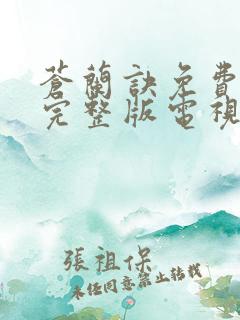 蒼蘭訣免費
完整版電視
張祖保
未经同意禁止转载